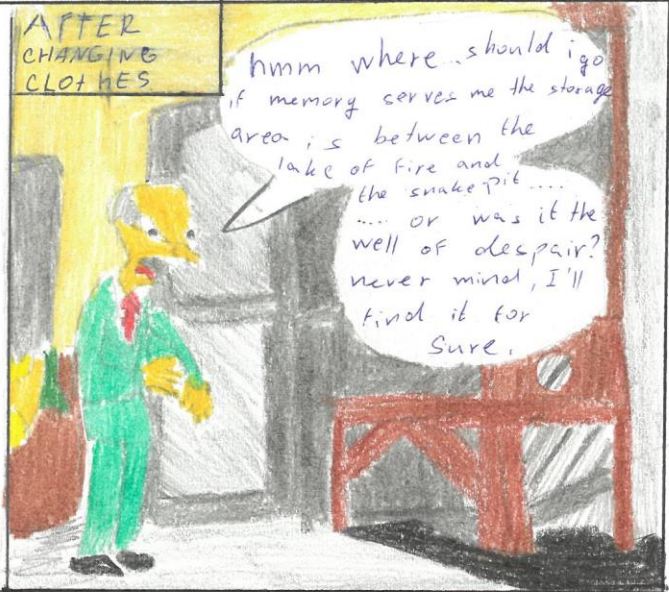 AFTER
CHANGING
CLOTHES
hmm where... should i go
if memory serves me the storage
area is between the
lake of fire and
the snake pit ....
.... or was it the
well of despair?
never mind, I'll
find it for
sure.